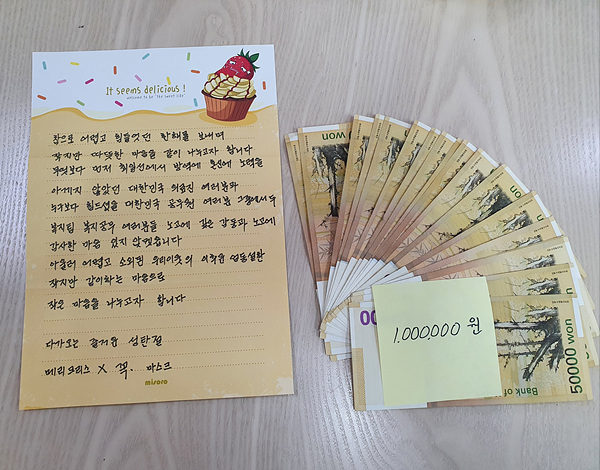 It seems delicious !
welcome to be "the sweet life"
참으로 어렵고 힘들었던 한해를 보내며
작지만 따뜻한 마음을 같이 나누고자 합니다
무엇보다 먼저 최일선에서 방역에 혼신에 노력을
아끼지 않았던 대한민국 의료진 여러분과
누구보다 힘드셨을 대한민국 공무원 여러분 그중에서두
복지팀 복지공무 여러분들 노고에 깊은 감동과 노고에
감사한 마음 잊지 않겠습니다
아울러 어렵고 소외된 우리이웃의
작지만 같이하는 마음으로
작은 마음을 나누고자 합니다
다가오는 즐거운 성탄절
메리크리스 X 꼭. 마스크
misoro
won
1,000,000 원
00
50000 won
Bank of